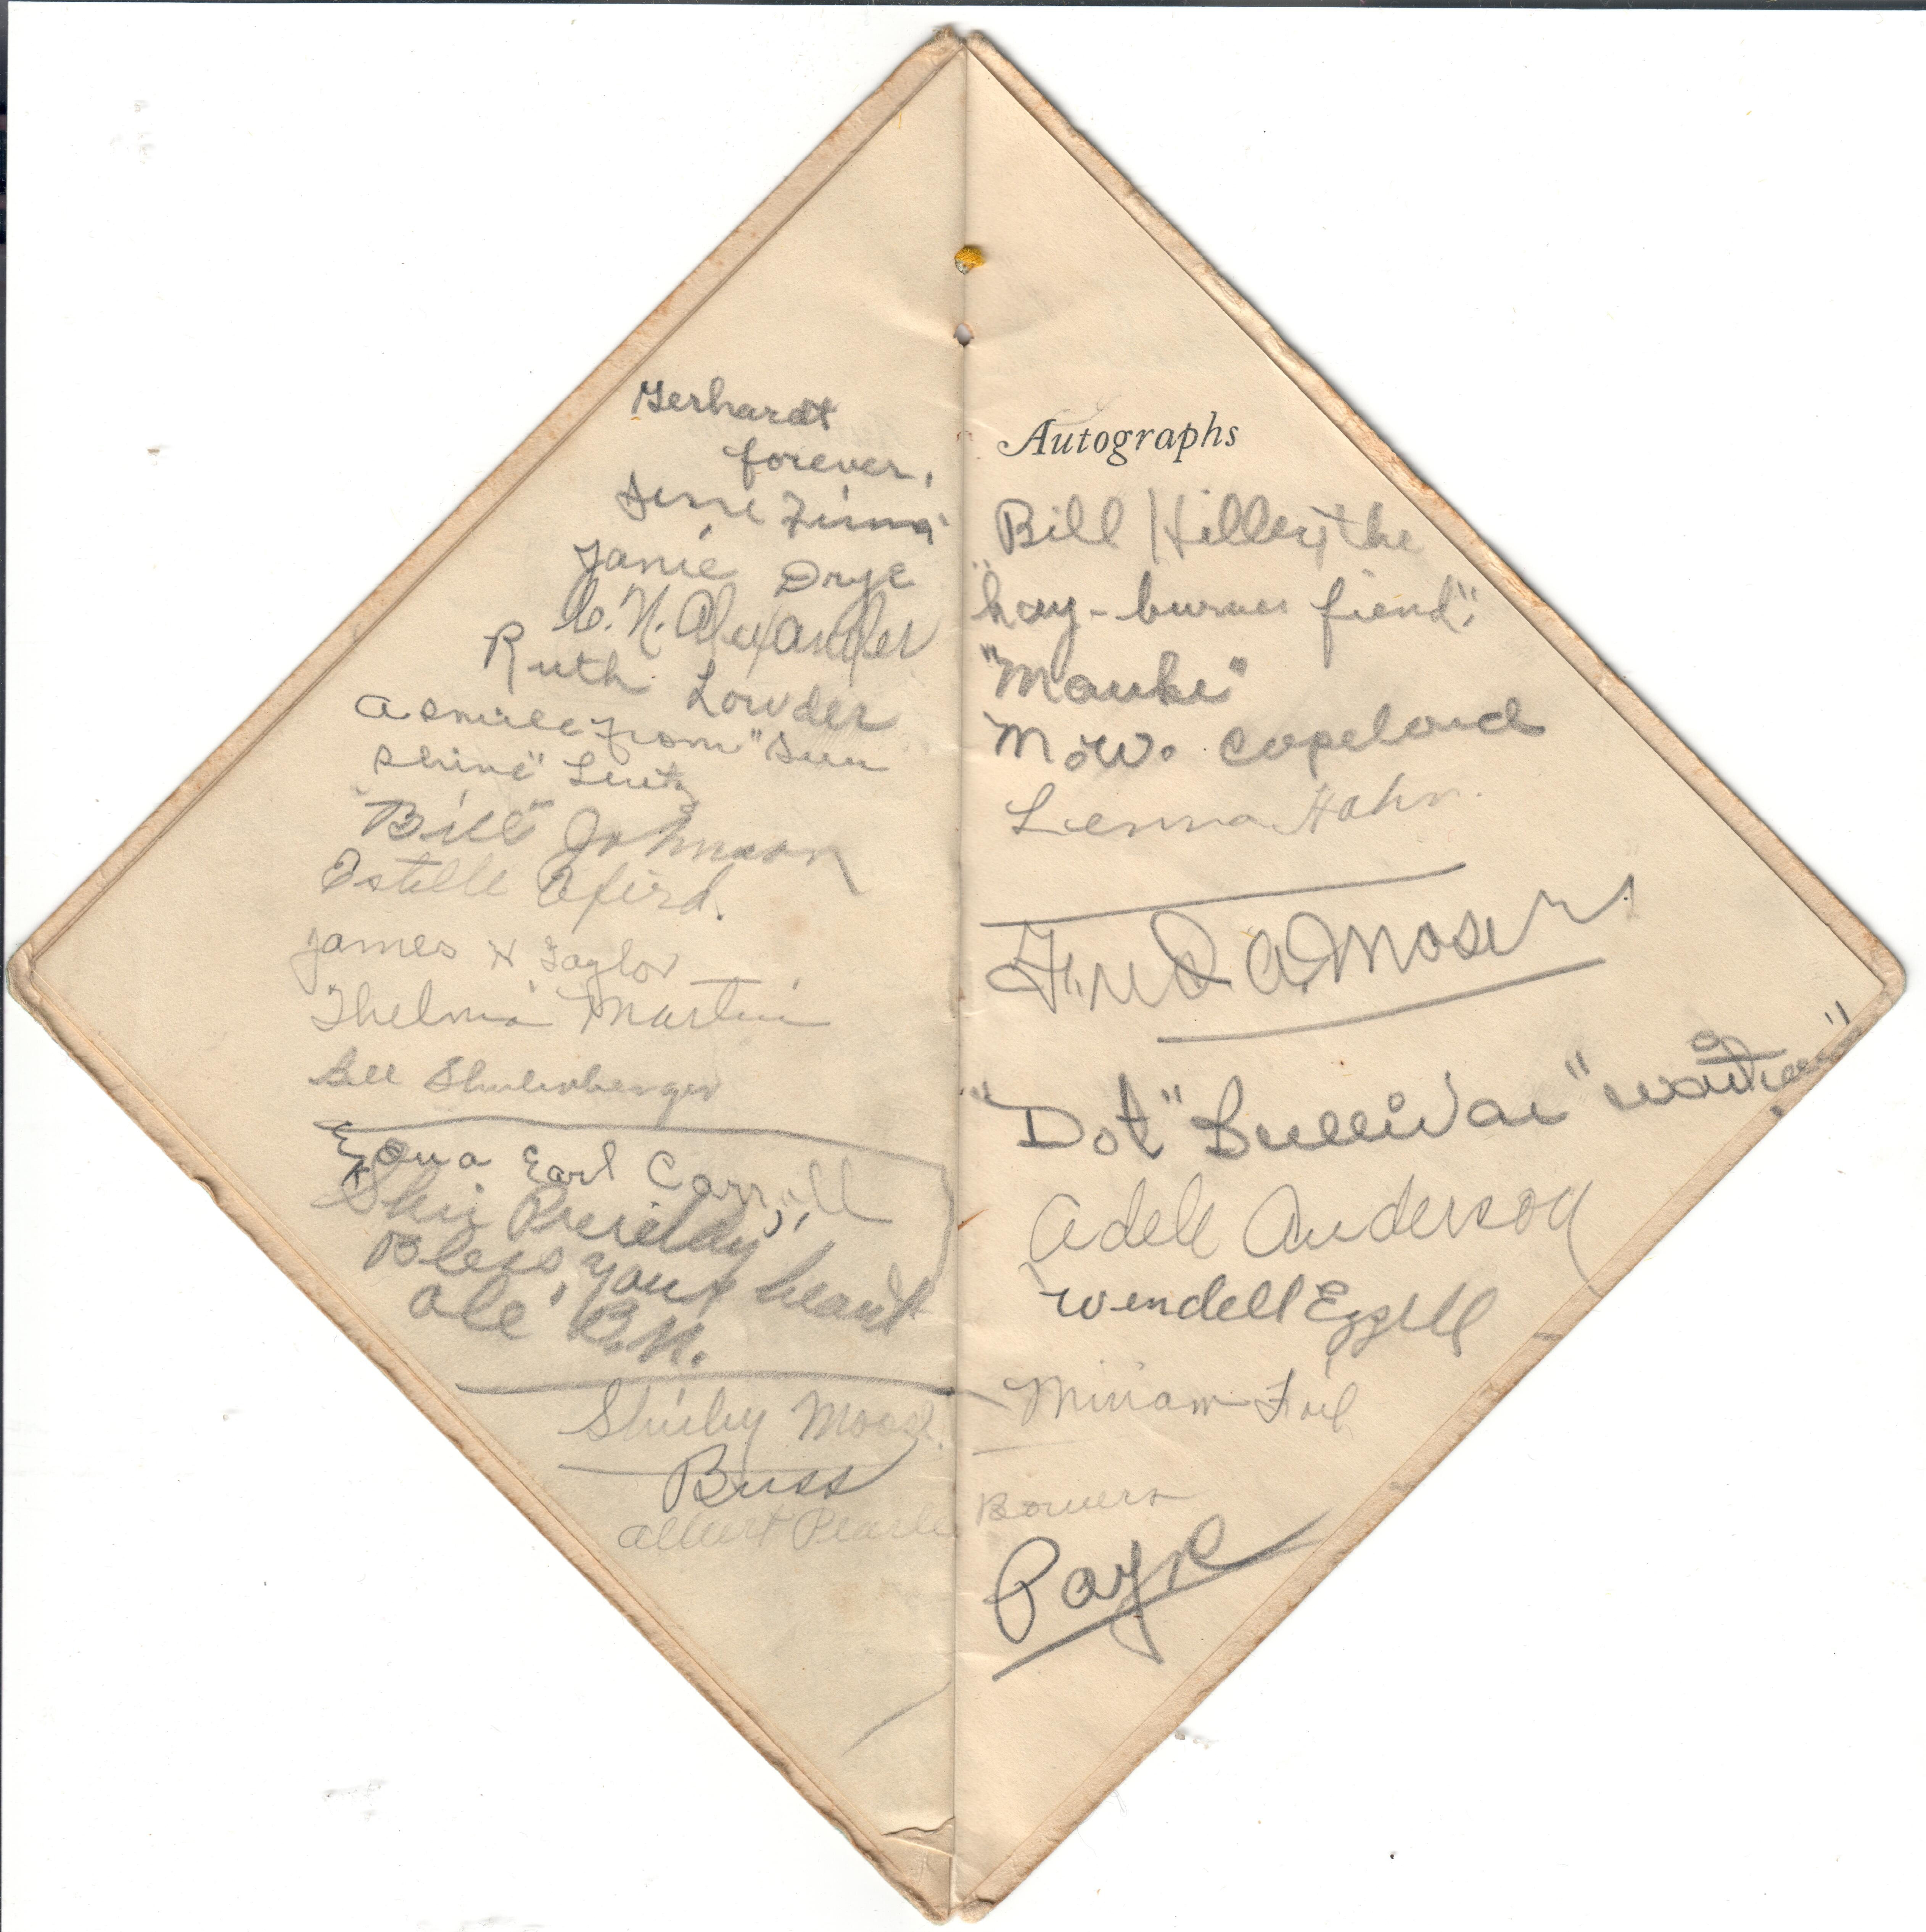 Gerhardt
forever.
Janie Drye
C. N. Alexander
Ruth Lowder
A smile from "Sun
shine" Lentz
"Bill" Johnson
Estelle Efird.
James H Taylor
Thelma Martin
Bill Shulenberger
Edna Earl Carroll
Bless your heart
ole' B.N.
Shirley Moose.
Buss
Albert Pearle Bowers
Autographs
Bill Hilley, the
"hay-burner fiend".
"Mauke"
M.W. Copeland
Lenna Hahn.
Fred A. Moser
"Dot" Sullivan
Adele Anderson
Wendell Ezzell
Miriam Foil
Payne